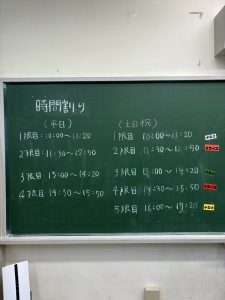 時間割り
(平日) (土日祝)
1限目:10:00〜11:20 1限目 10:00〜11:20
2限目:11:30〜12:50 2限目 11:30〜12:50
3限目:13:00〜14:20 3限目 13:00〜14:20
4限目:14:30〜15:50 4限目 14:30〜15:50
5限目 16:00〜17:20